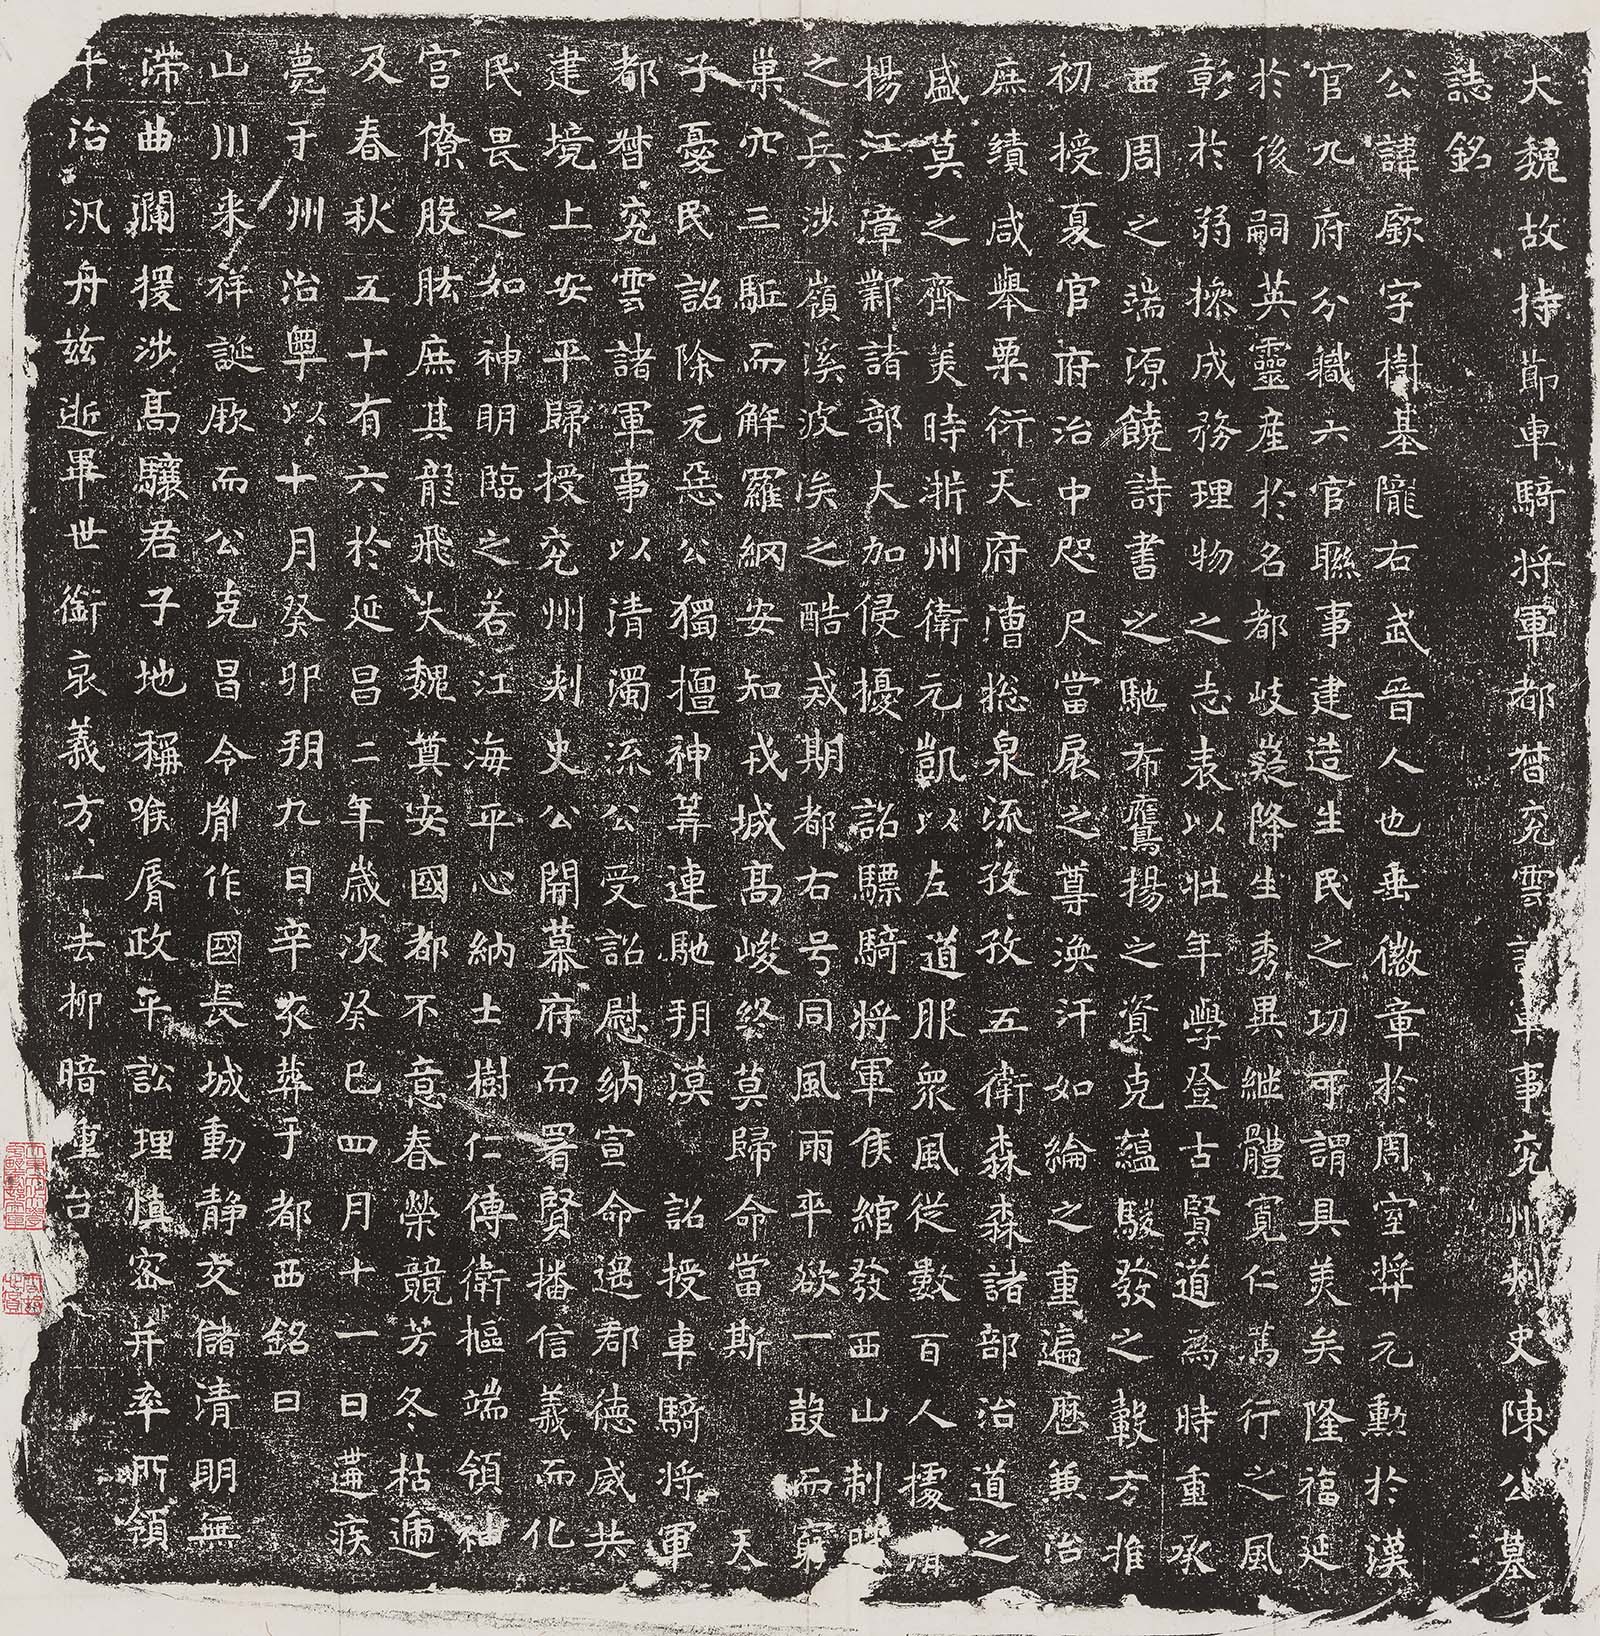 大魏故持節車騎將軍都督兗雲諸軍事兗州刺史陳公墓
誌銘
公諱厥字樹基隴右武晉人也垂徽章於周室弉元勳於漢
官九府分職六官聯事建造生民之功可謂具美矣隆福延
於後嗣英靈産於名都岐嶷降生秀異継體寬仁蔿行之風
彰於弱操成務理物之志表以壯年學登古賢道為時重承
西周之端源饒詩書之馳布鷹揚之資克蘊駿發之轂方推
初授夏官府治中咫尺當扆之尊渙汗如綸之重遍歷兼治
庶績咸舉栗衍天府漕捴泉流孜孜五衛森森諸部治道之
盛莫之齊美時浙州衛元凱以左道服衆風從數百人據
揚江漳鄴諸部大加侵擾 詔驃騎將軍侯綰發西山制
之兵涉嶺溪波俟之酷戎期都右号同風雨卒欲一鼓而窮
巢穴三駈而解羅網安知戎城高峻終莫歸命當斯 天
子憂民詔除元惡公獨擅神筭連馳玥漠 詔授車騎將軍
都督兗雲諸軍事以清濁流公受詔慰納宣命遝郡德威共
建境上安平歸授兗州刾史公開幕府而署賢播信義而化
民畏之如神明臨之若江海平心納士樹仁傳衛樞端領袖
官僚股肱庶其龍飛大魏奠安國都不意春榮競芳冬枯逓
及春秋五十有六於延昌二年歲次癸巳四月十一日遘疾
薨于州 治粵以十月癸卯玥九日辛亥葬于 都西銘曰
山川來祥誕厥而公克昌令胤作國長城動静交儲清明無
滯曲瀾援涉髙驤君子地稱喉脣政平訟理慎密并率所領
平治汎舟兹逝畢世銜哀義方一去柳暗重台